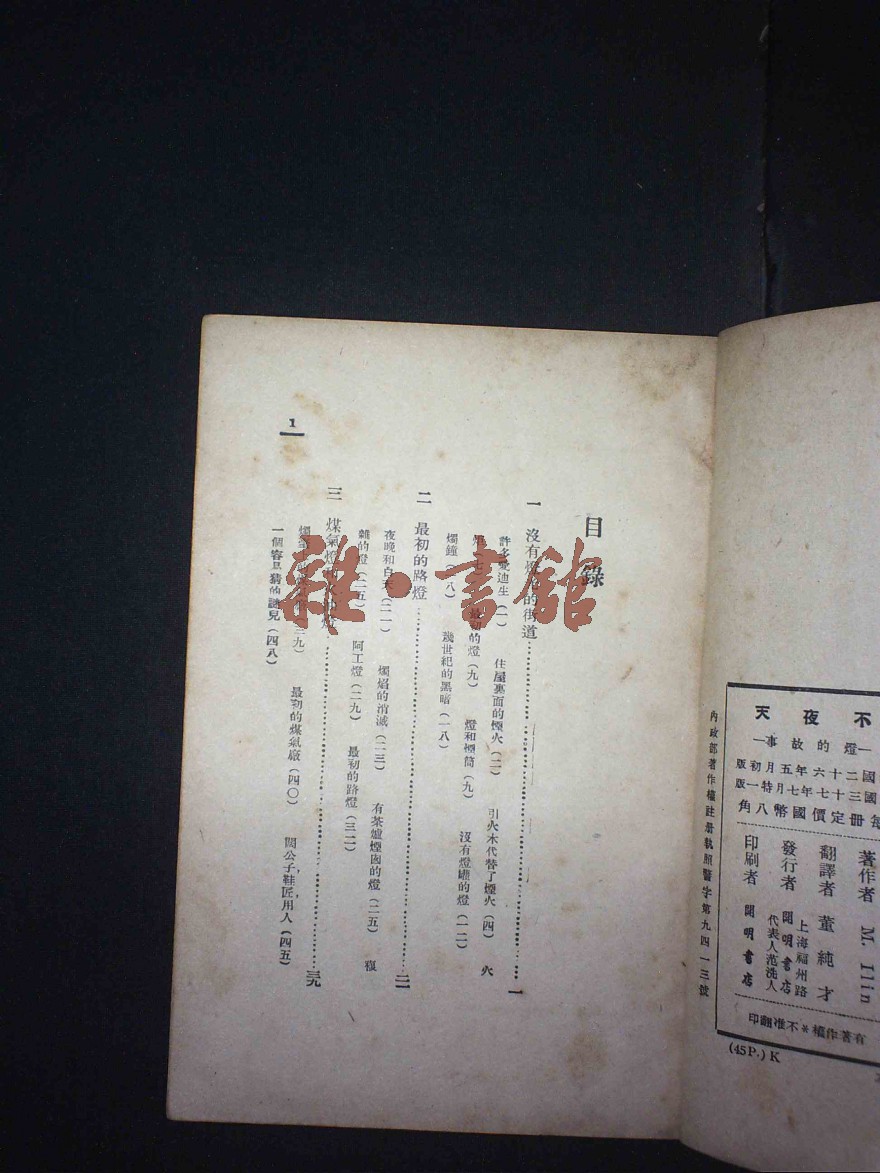 不夜天
—燈的故事—
國二十六年五月初版
國三十七年七月特一版
每冊定價國幣八角
著作者 M. Ilin
翻譯者 董純才
發行者 上海福州路 開明書店 代表人范洗人
印刷者 開明書店
有著作權※不准翻印
(45P.) K
內政部著作權註册執照警字第九四一三號
目錄
一 沒有燈的街道……一
許多愛迪生(一) 住屋裏面的煙火(二) 引火木代替了煙火(四) 火
炬(七) 最初的燈(九) 燈和煙筒(九) 沒有燈罐的燈(一二)
燭鐘(一八) 幾世紀的黑暗(一八)
二 最初的路燈……二一
夜晚和白天(二一) 燭焰的消滅(二三) 有茶爐煙囱的燈(二五) 複
雜的燈(二五) 阿工燈(二九) 最初的路燈(三二)
三 煤氣燈……三九
燭(三九) 最初的煤氣廠(四〇) 闊公子,鞋匠,用人(四五)
一個容易猜的謎兒(四八)
1
雜·書館